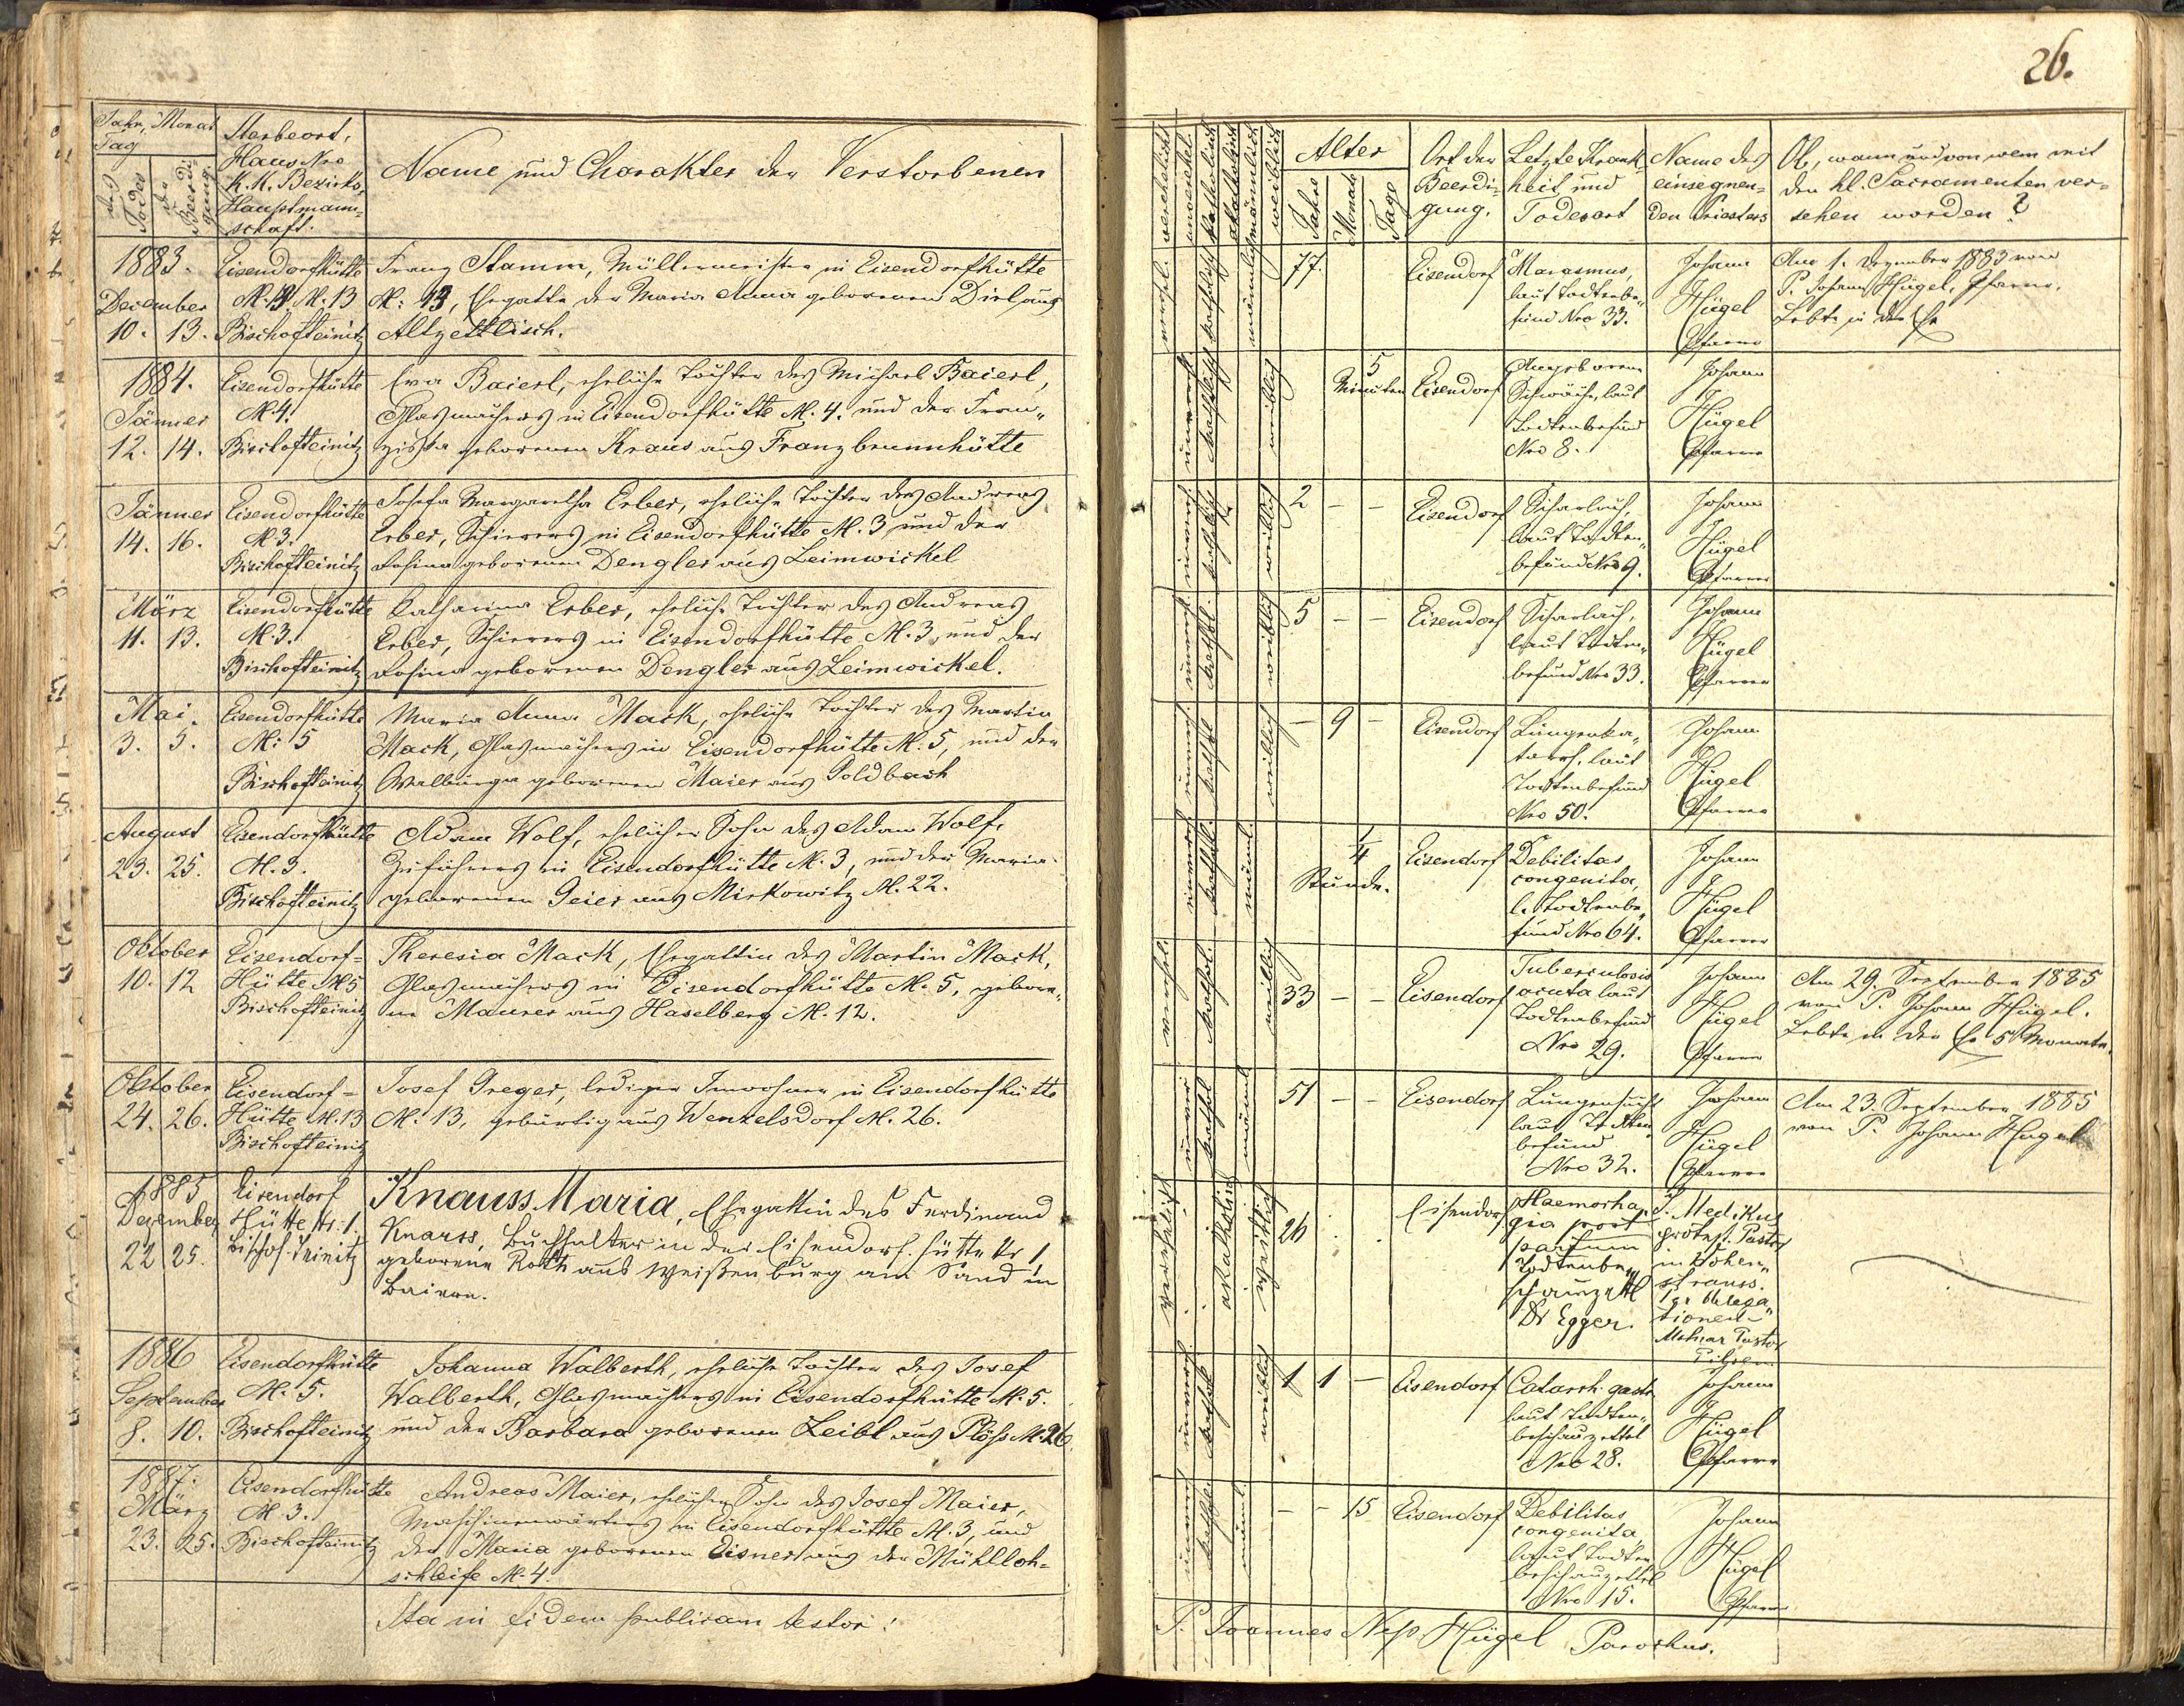 26.
Jahr, Monat
Tag
des
Todes
der
Beerdi-
gung.
Sterbeort,
Haus Nro
K.K. Bezirks-
Hauptmann-
schaft.
Name und Charakter der Verstorbenen
1883.
December
10. 13.
Eisendorfhütte
N. 13
Bischofteinitz
Franz Stamm, Müllermeister in Eisendorfhütte
N: 13, Ehegatte der Maria Anna geborenen Dirl aus
Altzettlisch.
1884.
Jänner
12. 14.
Eisendorfhütte
N. 4.
Bischofteinitz
Eva Baierl, eheliche Tochter des Michael Baierl,
Glasmachers in Eisendorfhütte N. 4. und der Fran„
ziska geborenen Kraus aus Franzbrunnhütte
Jänner
14. 16.
Eisendorfhütte
N 3.
Bischofteinitz
Josefa Margaretha Erber, eheliche Tochter des Andreas
Erber, Schierers in Eisendorfhütte N. 3 und der
Rosina geborenen Dengler aus Leimwickel
März
11. 13.
Eisendorfhütte
N. 3.
Bischofteinitz
Katharina Erber, eheliche Tochter des Andreas
Erber, Schierers in Eisendorfhütte N. 3 und der
Rosina geborenen Dengler aus Leimwickel.
Mai.
3. 5.
Eisendorfhütte
N: 5
Bischofteinitz
Maria Anna Mack, eheliche Tochter des Martin
Mack, Glasmachers in Eisendorfhütte N. 5, und der
Walburga geborenen Maier aus Goldbach
August
23. 25.
Eisendorfhütte
N. 3.
Bischofteinitz
Adam Wolf, ehelicher Sohn des Adam Wolf,
in Eisendorfhütte N. 3, und der Maria
geborenen Geier aus Mirkowitz N. 22.
Oktober
10. 12
Eisendorf=
Hütte N 5
Bischofteinitz
Theresia Mack, Ehegattin des Martin Mack,
Glasmachers in Eisendorfhütte N. 5, gebore„
ne Maurer aus Haselberg N. 12.
Oktober
24. 26.
Eisendorf=
Hütte N. 13
Bischofteinitz
Josef Greger, lediger Inwohner in Eisendorfhütte
N. 13, gebürtig aus Wenzelsdorf N. 26.
1885
Dezember
22 25.
Eisendorf
Hütte Nr. 1.
Bischof. Teinitz
Knauss Maria, Ehegattin des Ferdinand
Knauss, Buchhalter in der Eisendorf. Hütte Nr 1
geborene Roth aus Weißenburg am Sand in
Baiern.
1886
September
8. 10.
Eisendorfhütte
N. 5.
Bischofteinitz
Johanna Walberth, eheliche Tochter des Josef
Walberth, Glasmachers in Eisendorfhütte N. 5.
und der Barbara geborenen Leibl aus Plöss N. 26
1887.
März
23. 25.
Eisendorfhütte
N. 3.
Bischofteinitz
Andreas Maier, ehelicher Sohn des Josef Maier,
Maschinenwärters in Eisendorfhütte N. 3 und
der Maria geborenen Eisner aus der Mühlloh-
schleife N. 4.
Ita in fidem publicam testor:
verehelicht
unverehel.
katholisch
akatholisch
männlich
weiblich
Alter
Jahre
Monat
Tage
Ort der
Beerdi-
gung.
Letzte Krank-
heit, und
Todesart
Name des
einsegnen-
den Priesters
Ob, wann und von wem mit
den hl. Sacramenten ver-
sehen worden?
verehel.
katholisch
männlich
77.
Eisendorf
Marasmus,
laut Todtenbe„
fund Nro 33.
Johann
Hügel
Pfarrer
Am 1. Dezember 1883 von
P. Johann Hügel, Pfarrer.
Lebte in der Ehe
unvereh.
katholisch
weiblich
5
Minuten
Eisendorf
Angeborene
Schwäche, laut
Todtenbefund
Nro 8.
Johann
Hügel
Pfarrer
katholisch
weiblich
2 - -
Eisendorf
Scharlach,
laut Todten„
befund Nro 9.
Johann
Hügel
Pfarrer
unvereh
kathol.
weiblich
5 - -
Eisendorf
Scharlach,
laut Todten„
befund Nro 33.
Johann
Hügel
Pfarrer
unvereh
kathol
weiblich
- 9 -
Eisendorf
Lungenka„
tarrh, laut
Todtenbefund
Nro 50.
Johann
Hügel
Pfarrer
unvereh
kathol.
männl.
1/4
Stunde.
Eisendorf
Debilitas
congenita,
l. Todtenbe„
fund Nro 64.
Johann
Hügel
Pfarrer
verehel.
kathol.
weiblich
33 - -
Eisendorf
Tuberculosis
acuta laut
Todtenbefund
Nro 29.
Johann
Hügel
Pfarrer
Am 29. September 1885
von P. Johann Hügel.
Lebte in der Ehe 5 Monate.
unver
kathol
männl
51 - -
Eisendorf
Lungensucht
laut Todten„
befund
Nro 32.
Johann
Hügel
Pfarrer
Am 23. September 1885
von P. Johann Hügel
verehelicht
akatholisch
weiblich
26
Eisendorf
Haemorha„
gia post
partum
Todtenbe„
schauzettl
Dr Egger.
J. Medikus
protest. Pastor
in Vohen„
strauss.
Pastor
Pilsen
unvereh
kathol
weiblich
1 1 -
Eisendorf
Catarrh. gastr.
laut Todten„
beschauzettel
Nro 28.
Johann
Hügel
Pfarrer
kathol.
männl
- - 15
Eisendorf
Debilitas
congenita
laut Todten
beschauzettel
Nro 15.
Johann
Hügel
Pfarrer
P. Joannes Nep. Hügel Parochus.